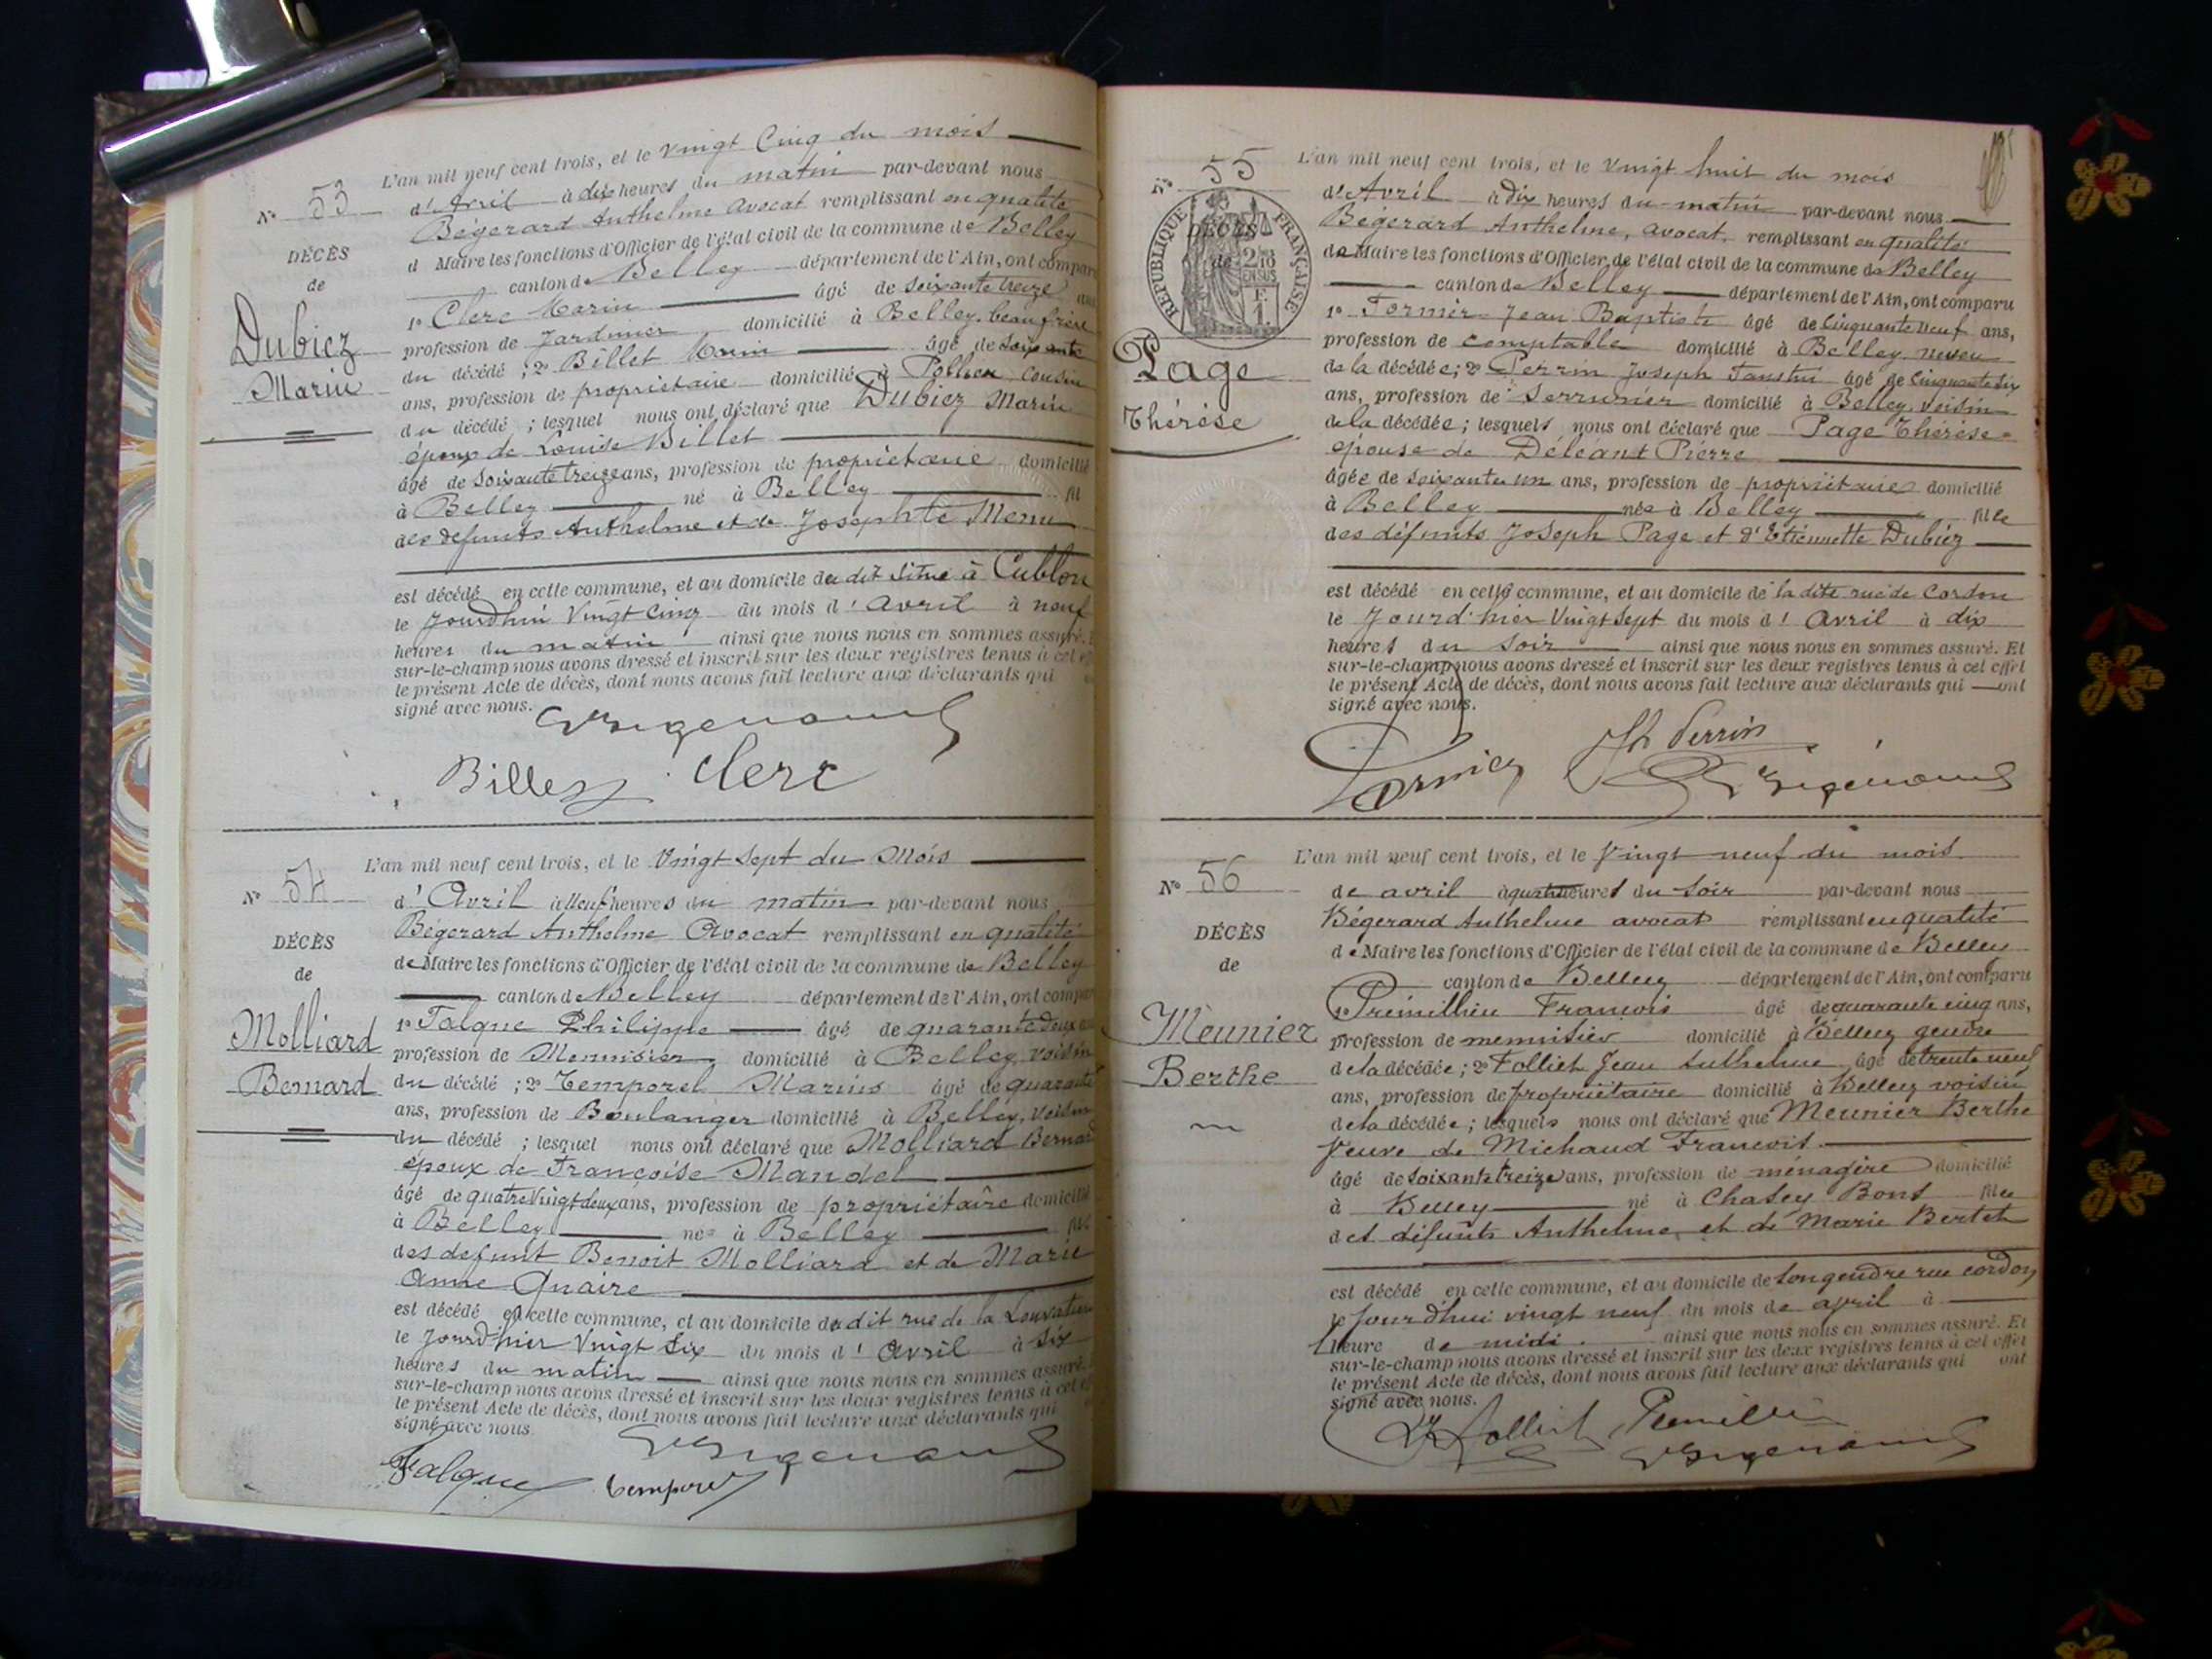 L'an mil neuf cent trois, et le vingt Cinq du mois
N° 53
d'Avril à dix heures du matin par-devant nous
Bégerard Anthelme avocat remplissant en qualité
DÉCÈS
de
d Maire les fonctions d'Officier de l'état civil de la commune de Belley
canton de Belley département de l'Ain, ont compar
1° Clerc Marin âgé de soixante treize ans
Dubiez
Marin
profession de Jardinier domicilié à Belley, beau frère
du décédé ; 2° Billet Marin âgé de soixante
ans, profession de propriétaire domicilié à Pollieu cousin
du décédé ; lesquel nous ont déclaré que Dubiez Marin
époux de Louise Billet
âgé de soixante treize ans, profession de propriétaire domicilié
à Belley né à Belley fil
des défunts Anthelme et de Josephte Menu
est décédé en cette commune, et au domicile du dit situé à Cublon
le Jourdhui Vingt cinq du mois d'avril à neuf
heures du matin ainsi que nous nous en sommes assuré.
sur-le-champ nous avons dressé et inscrit sur les deux registres tenus à cet
le présent Acte de décès, dont nous avons fait lecture aux déclarants qui
signé avec nous.
Billet Clerc
L'an mil neuf cent trois, et le Vingt Sept du Mois
N° 54
d'Avril à Neuf heures du matin par-devant nous
Bégerard Anthelme Avocat remplissant en qualité
DÉCÈS
de
de Maire les fonctions d'Officier de l'état civil de la commune de Belley
canton de Belley département de l'Ain, ont compar
1° Falque Philippe âgé de quarante deux
Molliard
Bernard
profession de Menuisier domicilié à Belley, voisin
du décédé ; 2° Temporel Marius âgé de quarante
ans, profession de Boulanger domicilié à Belley, voisin
du décédé ; lesquel nous ont déclaré que Molliard Bernard
époux de Françoise Mandel
âgé de quatre Vingt deux ans, profession de propriétaire domicilié
à Belley né à Belley fils
des defunt Benoit Molliard et de Marie
Anne Quaire
est décédé en cette commune, et au domicile du dit rue de la
le Jourd'hier Vingt Six du mois d'Avril à Six
heures du matin ainsi que nous nous en sommes assuré.
sur-le-champ nous avons dressé et inscrit sur les deux registres tenus à cet
le présent Acte de décès, dont nous avons fait lecture aux déclarants qui
signé avec nous.
Falque Temporel
L'an mil neuf cent trois, et le Vingt huit du mois
N° 55
d'Avril à dix heures du matin par-devant nous
Bégerard Anthelme, avocat, remplissant en qualité
RÉPUBLIQUE FRANÇAISE
DÉCÈS
de
2/10 EN SUS
F. 1.
de Maire les fonctions d'Officier de l'état civil de la commune de Belley
canton de Belley département de l'Ain, ont comparu
1° Fornier Jean Baptiste âgé de Cinquante neuf ans,
Page
Thérèse
profession de comptable domicilié à Belley, neveu
de la décédée ; 2° Perrin Joseph Faustin âgé de Cinquante Six
ans, profession de Serrurier domicilié à Belley, voisin
de la décédée ; lesquels nous ont déclaré que Page Thérèse
épouse de Déléant Pierre
âgée de soixante un ans, profession de propriétaire domicilié
à Belley née à Belley fille
des défunts Joseph Page et d'Etiennette Dubiez
est décédé en cette commune, et au domicile de la dite rue de Cordon
le Jourd'hier Vingt Sept du mois d'Avril à dix
heures du Soir ainsi que nous nous en sommes assuré. Et
sur-le-champ nous avons dressé et inscrit sur les deux registres tenus à cet effet
le présent Acte de décès, dont nous avons fait lecture aux déclarants qui ont
signé avec nous.
Fornier Jh Perrin
L'an mil neuf cent trois, et le Vingt neuf du mois
N° 56
de avril à quatre heures du Soir par-devant nous
Bégerard Anthelme avocat remplissant en qualité
DÉCÈS
de
de Maire les fonctions d'Officier de l'état civil de la commune de Belley
canton de Belley département de l'Ain, ont comparu
1° Prémillieu François âgé de quarante cinq ans,
Meunier
Berthe
profession de menuisier domicilié à Belley gendre
de la décédée ; 2° Folliet Jean Anthelme âgé de trente neuf
ans, profession de propriétaire domicilié à Belley voisin
de la décédée ; lesquels nous ont déclaré que Meunier Berthe
Veuve de Michaud François
âgé de soixante treize ans, profession de ménagère domicilié
à Belley né à Chasey Bons fille
des défunts Anthelme et de Marie Bertet
est décédé en cette commune, et au domicile de Son gendre rue cordon
le Jourdhui vingt neuf du mois de avril à
1 heure de midi ainsi que nous nous en sommes assuré. Et
sur-le-champ nous avons dressé et inscrit sur les deux registres tenus à cet effet
le présent Acte de décès, dont nous avons fait lecture aux déclarants qui ont
signé avec nous.
Folliet Prémillieu